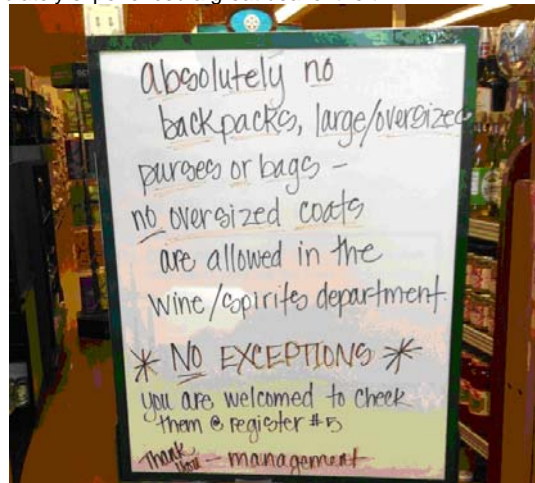 absolutely no
backpacks, large/oversized
purses or bags -
no oversized coats
are allowed in the
wine/spirits department.
* NO EXCEPTIONS *
you are welcomed to check
them @ register #5
Thank
you - management